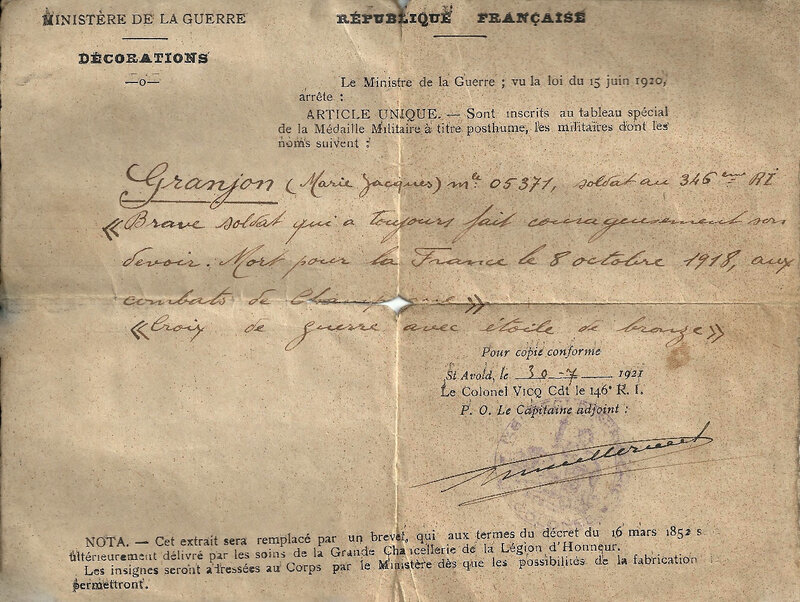 MINISTÈRE DE LA GUERRE
RÉPUBLIQUE FRANÇAISE
DÉCORATIONS
—o—
Le Ministre de la Guerre ; vu la loi du 15 juin 1920,
arrête :
ARTICLE UNIQUE. — Sont inscrits au tableau spécial
de la Médaille Militaire à titre posthume, les militaires dont les
noms suivent :
Granjon (Marie Jacques) mle 05371, soldat au 346ème RI
« Brave soldat qui a toujours fait courageusement son
devoir. Mort pour la France le 8 octobre 1918, aux
combats de Champagne »
« Croix de guerre avec étoile de bronze »
Pour copie conforme
St Avold, le 30-7 1921
Le Colonel VICQ Cdt le 146e R. I.
P. O. Le Capitaine adjoint :
NOTA. — Cet extrait sera remplacé par un brevet, qui aux termes du décret du 16 mars 1852 s
ultérieurement délivré par les soins de la Grande Chancellerie de la Légion d'Honneur.
Les insignes seront adressées au Corps par le Ministère dès que les possibilités de la fabrication
permettront.